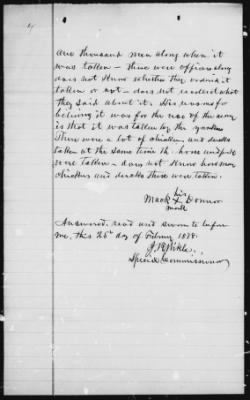 one thousand men along when it
was taken — there were officers along
does not know whether they ordered it
taken or not — does not recollect what
they said about it. His reasons for
believing it was for the use of the army
is that it was taken by the yankees
There were a lot of chickens and ducks
taken at the same time the horse
were taken — does not know how many
chickens and ducks there were taken.
his
Mack X Connor
mark
Answered, read and sworn to before
me, this 26th day of February 1878.
Special Commissioner